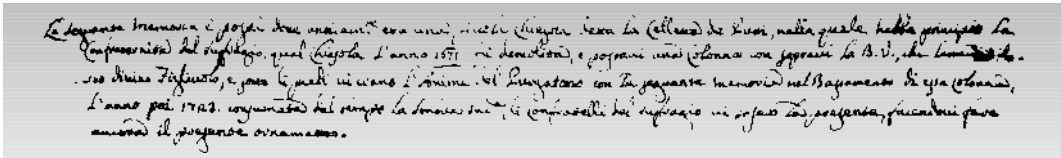 La seguente memoria è posta dove anticam.te era una piccola Chiesola detta la Celleta de Fusi, nella quale hebbe principio la
Confraternita del Suffragio, qual Chiesola l'anno 1671 fù demolita, e postavi una colonna con sopravi la B.V., che
suo divino Figliuolo, e sotto li quali vi erano l'Anime del Purgatorio con la seguente memoria nel Basamento di essa colonna,
L'anno poi 1723. consumata dal tempo la li Confratelli del Suffragio vi la presente, facendovi fare
il presente ornamento.